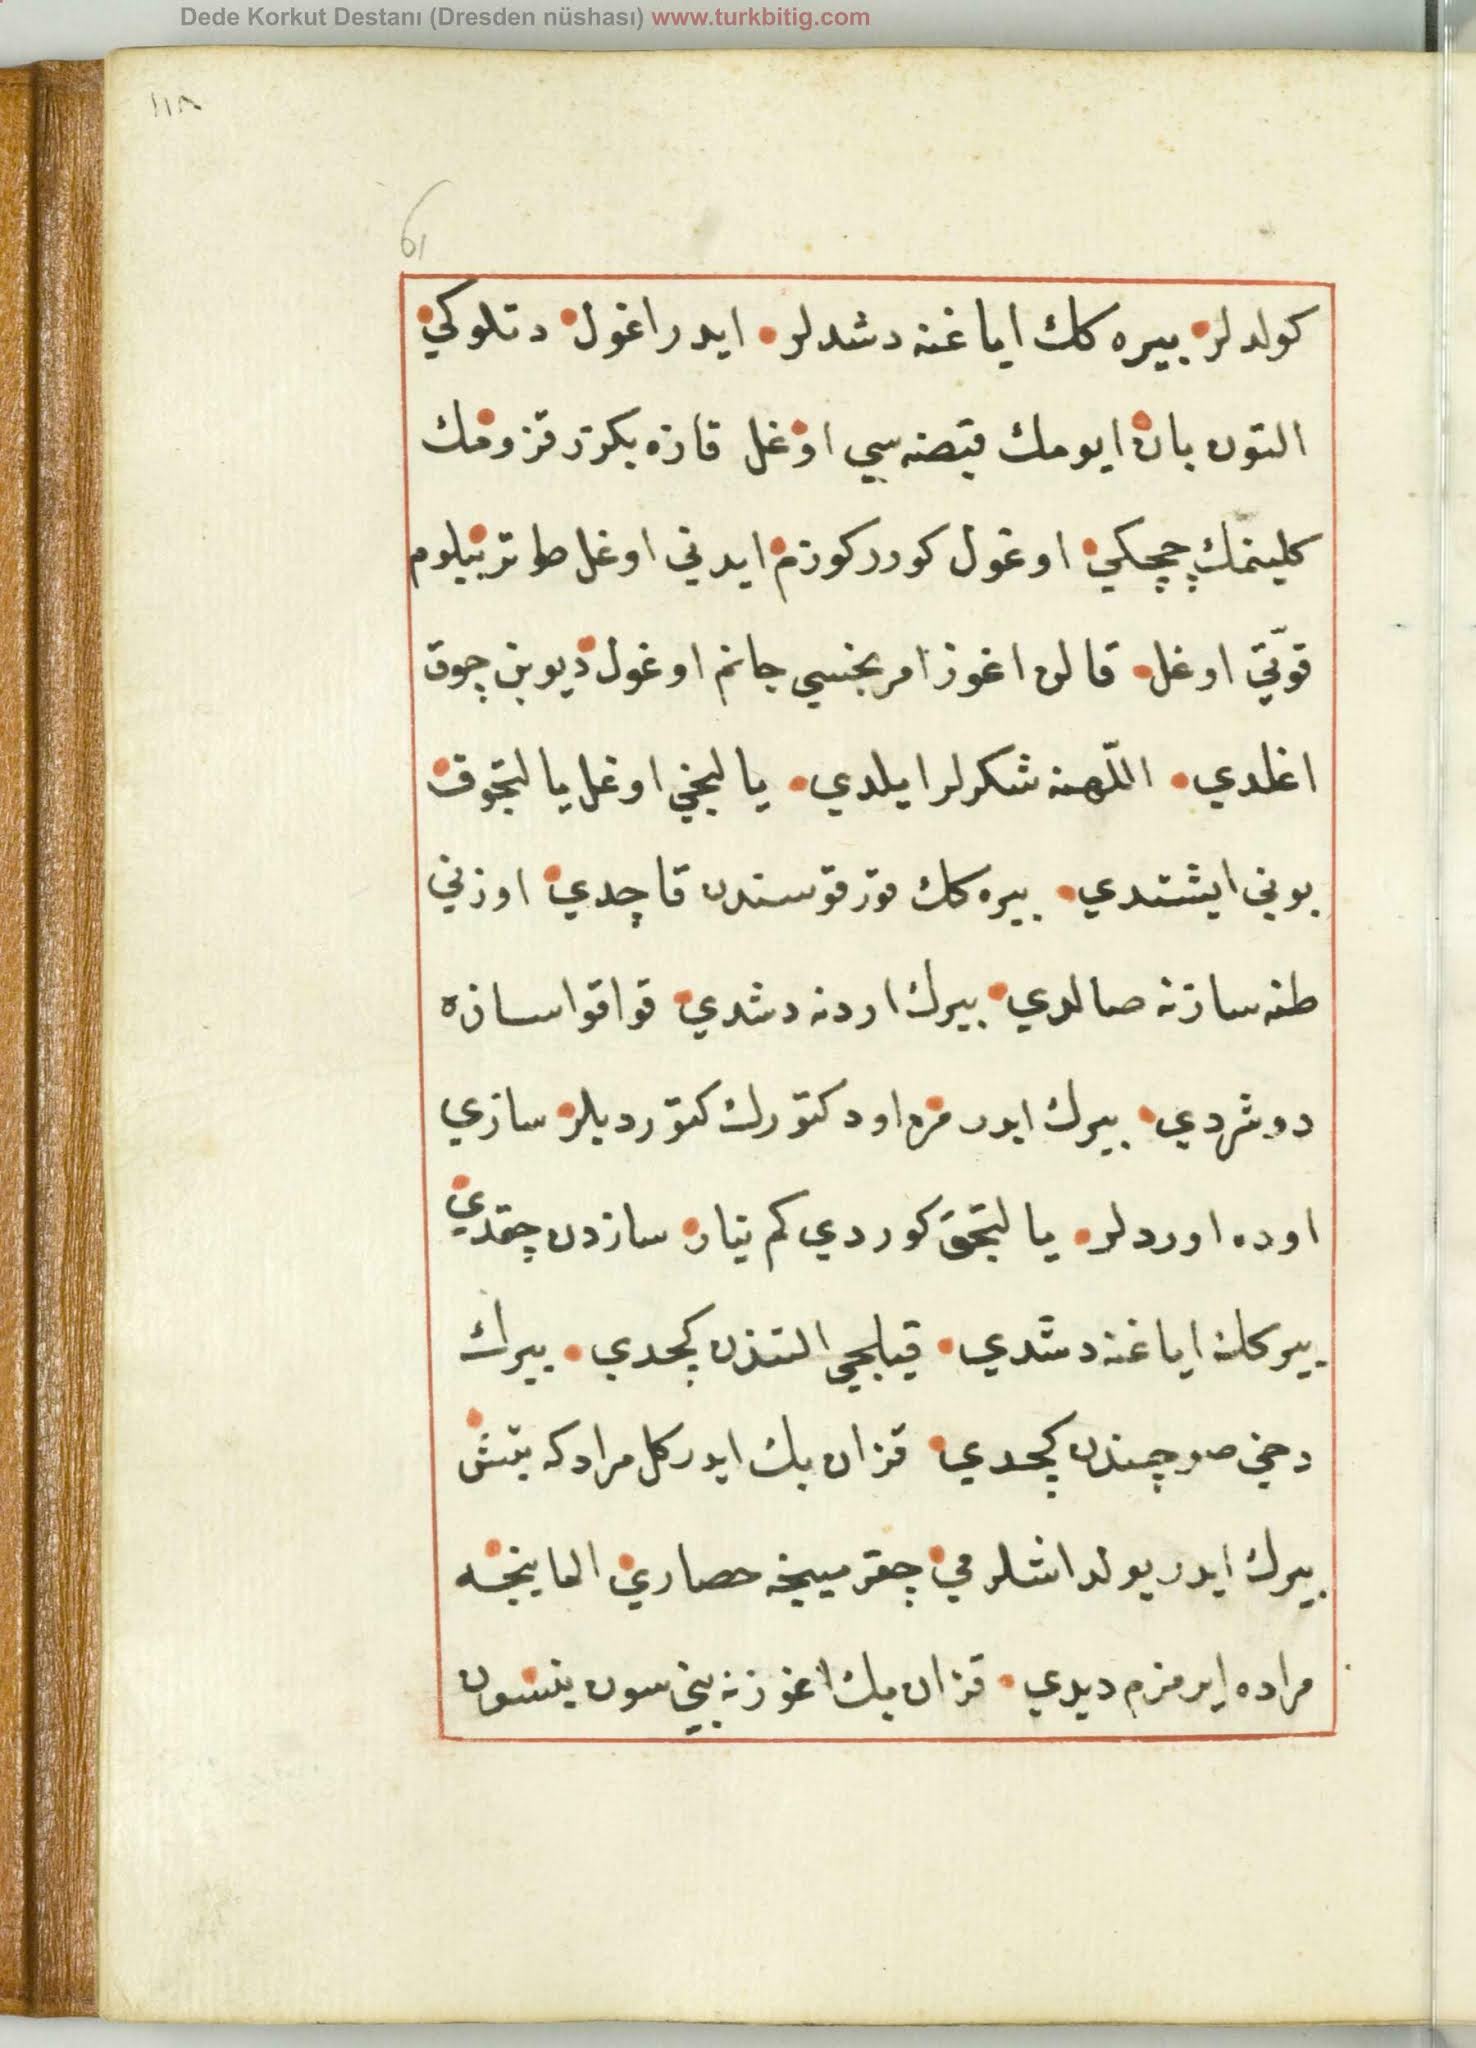 Dede Korkut Destanı (Dresden nüshası) www.turkbitig.com
١١٨
61
كولدلر بيره كك اياغنه دشدلر ايدر اغول دتلوكي
التون بان ايومك قبصه سي اوغل قازه بكزر قزومك
كلينمك چچكي اوغول كورر كوزم ايدني اوغل طوتر بيلوم
قوّتي اوغل قالن اغوز امرنجسي جانم اوغول ديوبن چوق
اغلدي اللّهنه شكرلر ايلدي يالنجي اوغل يالنجوق
بوني ايشتدي بيره كك قورقوسندن قاچدي اوزني
طنه سازنه صالدي بيرك اردنه دشدي قوا قوا سازه
دوشردي بيرك ايدر مره اود كتورك كتورديلر سازي
اوده اوردلر يالنجق كوردي كم ينار سازدن چقدي
بيركك اياغنه دشدي قيلجي التندن كچدي بيرك
دخي صوچندن كچدي قزان بك ايدر كل مرادكه يتش
بيرك ايدر يولداشلرمي چقرمينجه حصاري الماينجه
مراده ايرمزم ديدي قزان بك اغوزنه بيني سون بنسون